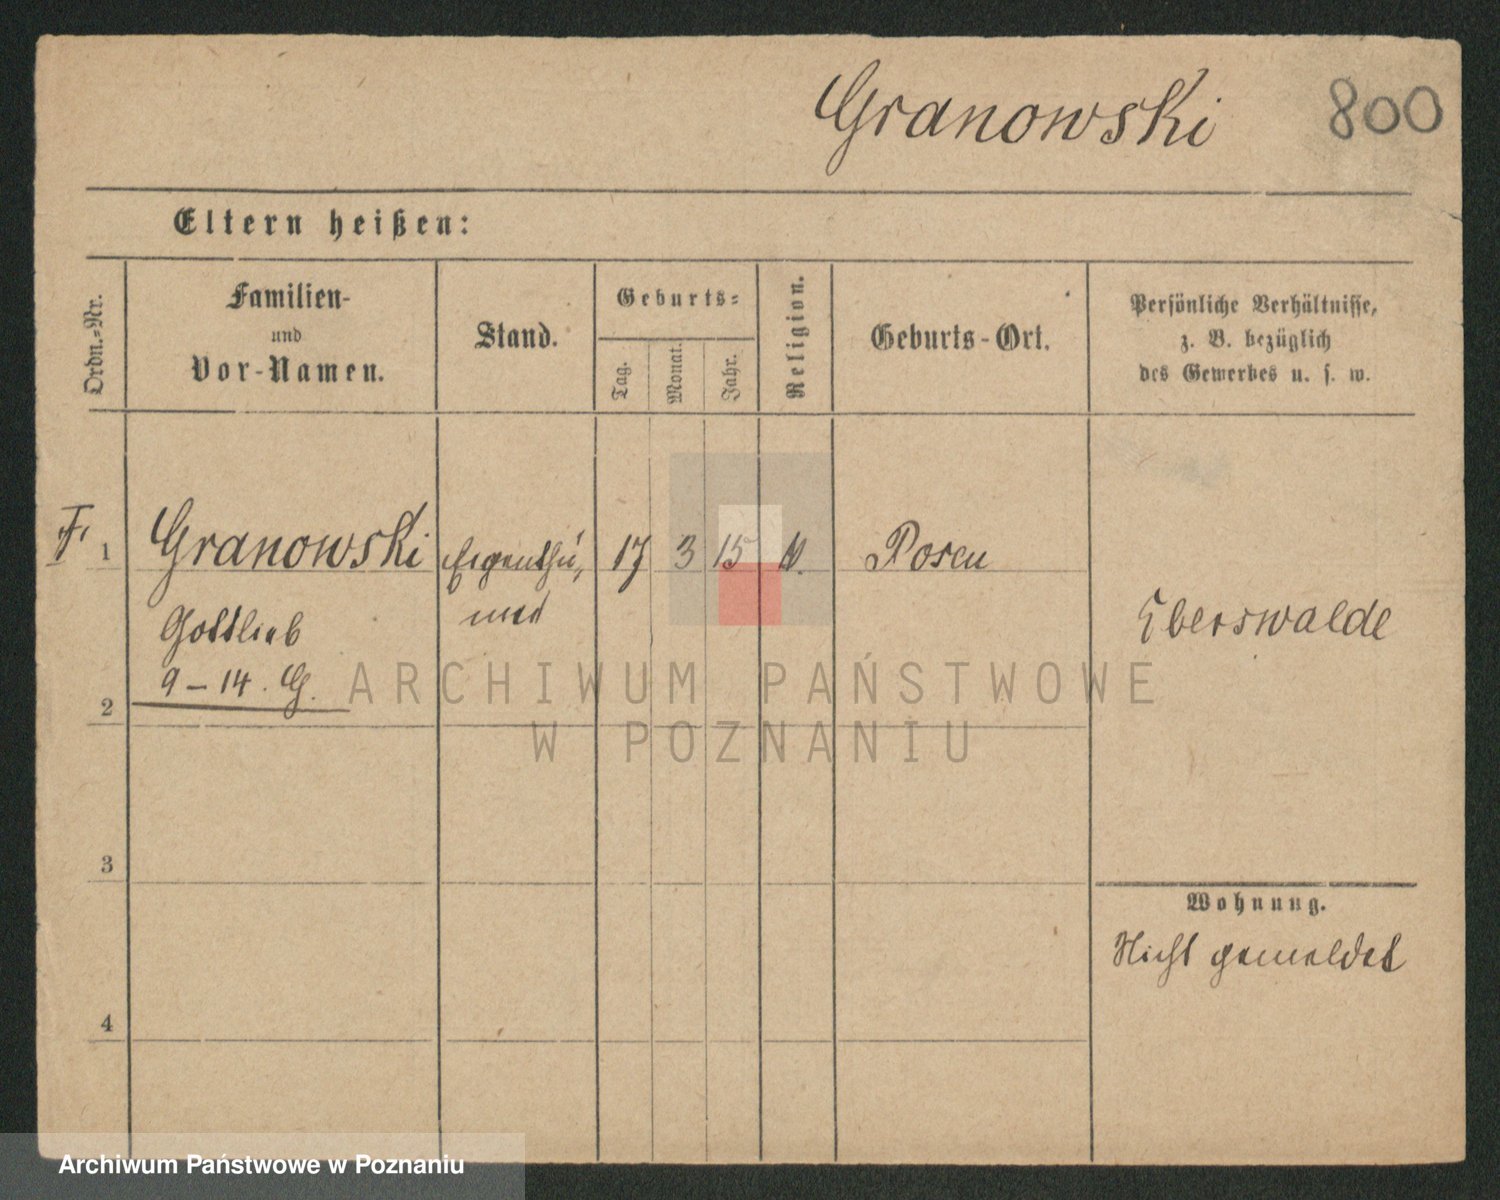 Granowski 800
Eltern heißen:
Ordn.-Nr.
Familien-
und
Vor-Namen.
Stand.
Geburts-
Tag.
Monat.
Jahr.
Religion.
Geburts-Ort.
Persönliche Verhältnisse,
z. B. bezüglich
des Gewerbes u. s. w.
1 Granowski Eigenthü- 17 3 15 Posen
Gottlieb mer
Eberswalde
9-14. G.
2
ARCHIWUM PAŃSTWOWE
W POZNANIU
3
Wohnung.
Nicht gemeldet
4
Archiwum Państwowe w Poznaniu